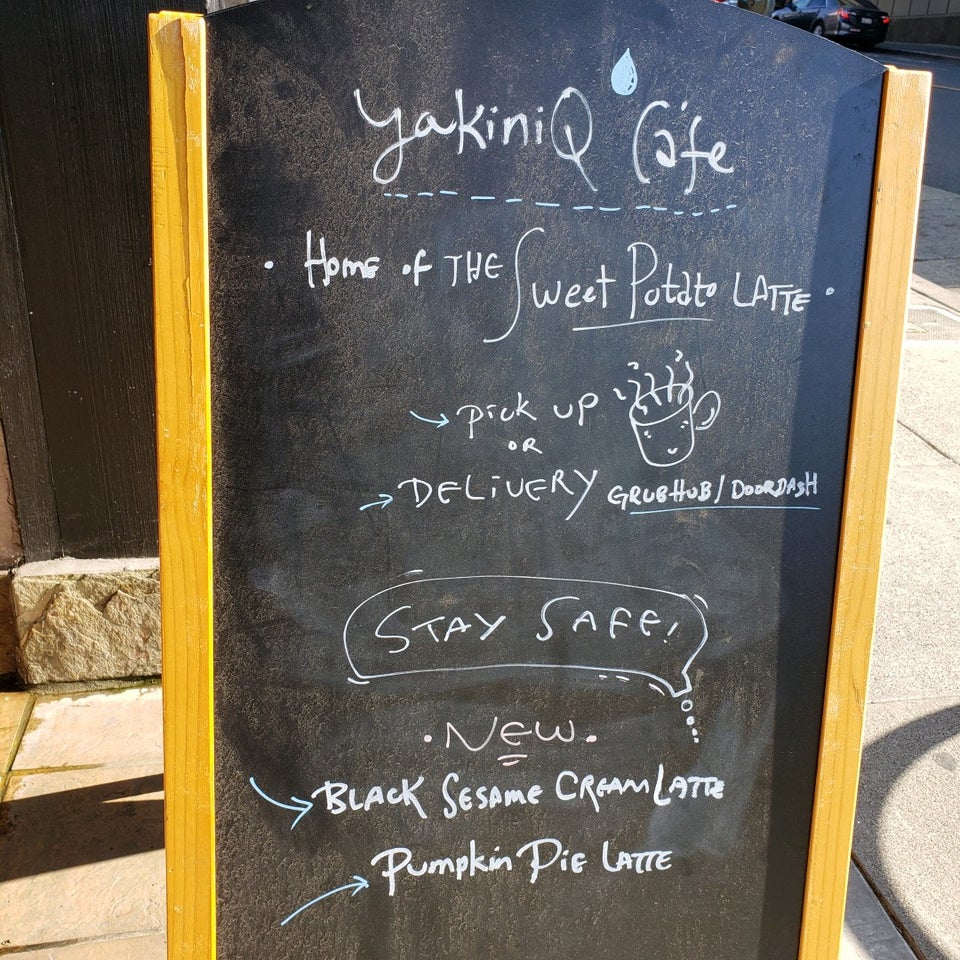 YakiniQ Cafe
• Home of THE Sweet Potato LATTE •
Pick UP
OR
DELIVERY GRUBHUB/DOORDASH
STAY SAFE!
• NEW •
BLACK SESAME CREAM LATTE
Pumpkin PIE LATTE